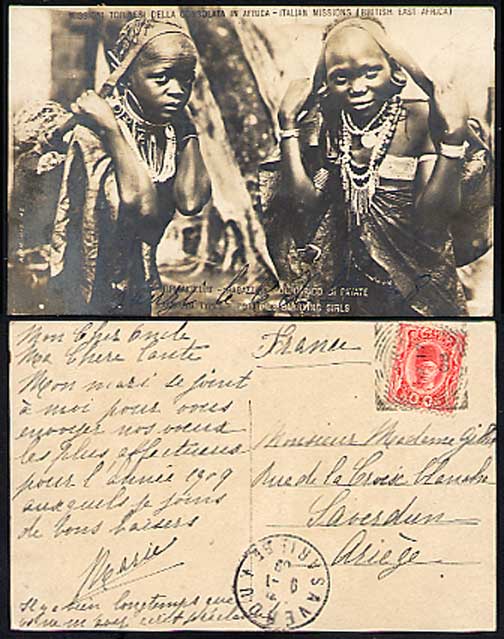 MISSIONI TORINESI DELLA CONSOLATA IN AFRICA - ITALIAN MISSIONS (BRITISH EAST AFRICA)
PATATE
GIRLS
Mon Cher Oncle
Ma Chere Tante
Mon mari se joint
à moi pour vous
envoyer nos voeux
les plus affectueux
pour l'année 1909
auxquels je joins
de bons baisers
Marie
longtemps que
France
Monsieur Madame
Rue de la Croix blanche
Saverdun
Ariège
SAVERDUN